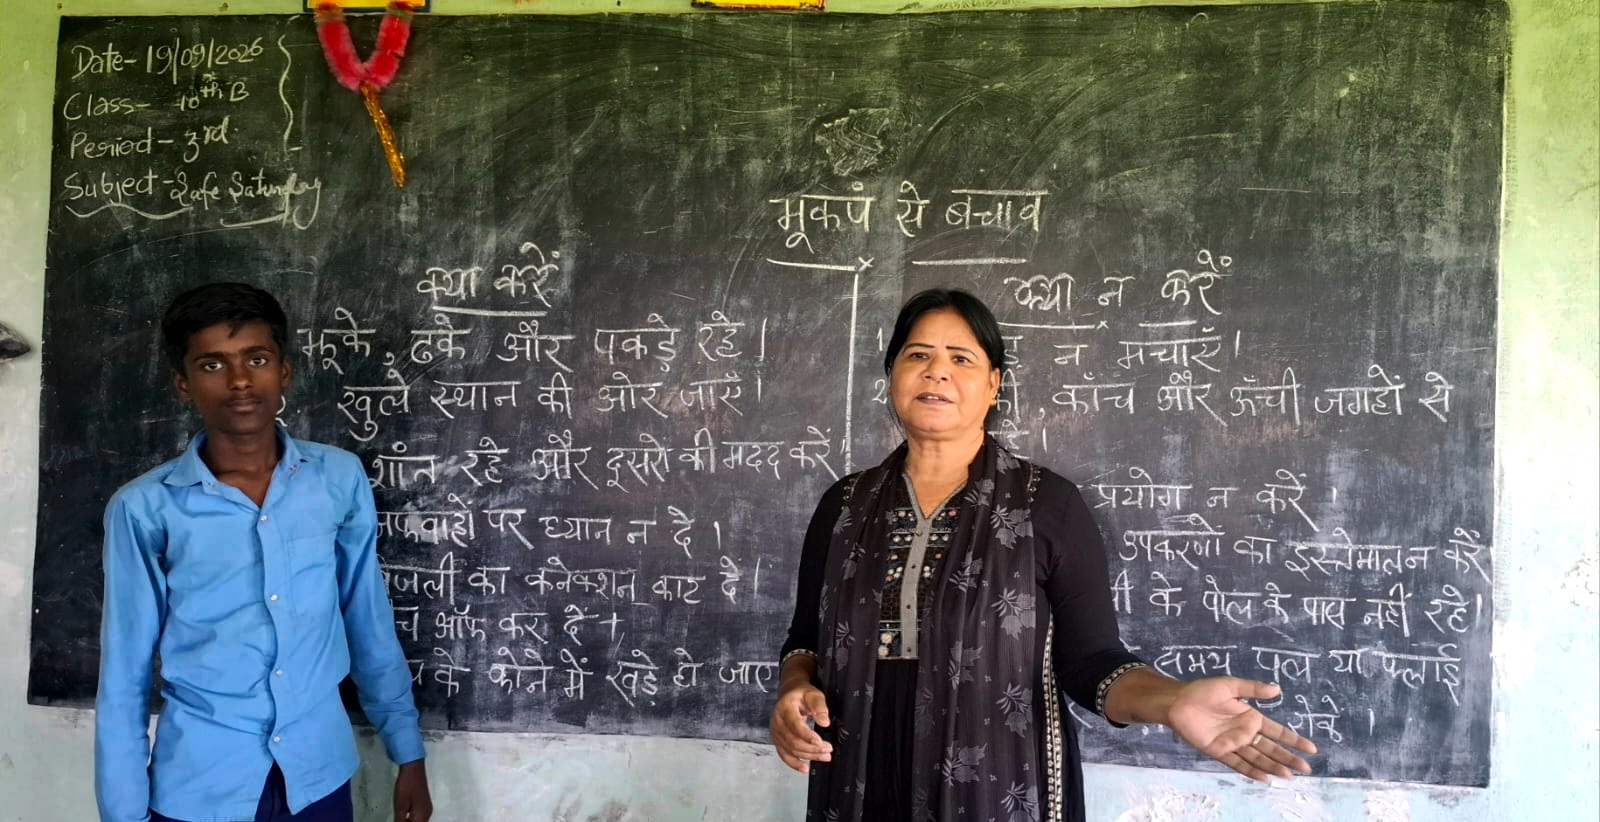 Date- 19/09/2026
Class- 10th B
Period- 3rd
Subject- Safe Saturday
भूकपं से बचाव
क्या करें
झूके, ढके और पकड़े रहे।
खुले स्थान की ओर जाएँ।
शांत रहे और दूसरो की मदद करें।
पर ध्यान न दे।
का कनेक्शन काट दे।
ऑफ कर दें
के कोने में खड़े हो जाए
क्या न करें
1
न मचाएँ।
2
, काँच और ऊँची जगहों से
प्रयोग न करें।
उपकरणों का इस्तेमाल न करें
के पोल के पास नहीं रहे।
समय पुल या फ्लाई
रोकें।